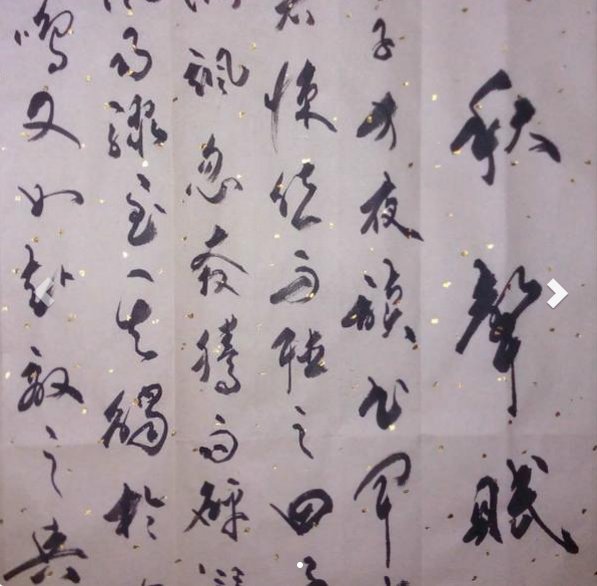 秋聲賦
子方夜讀書聞
者悚然而聽之曰
颯忽奔騰而砰
雨驟至其觸於
鳴又如赴敵之兵